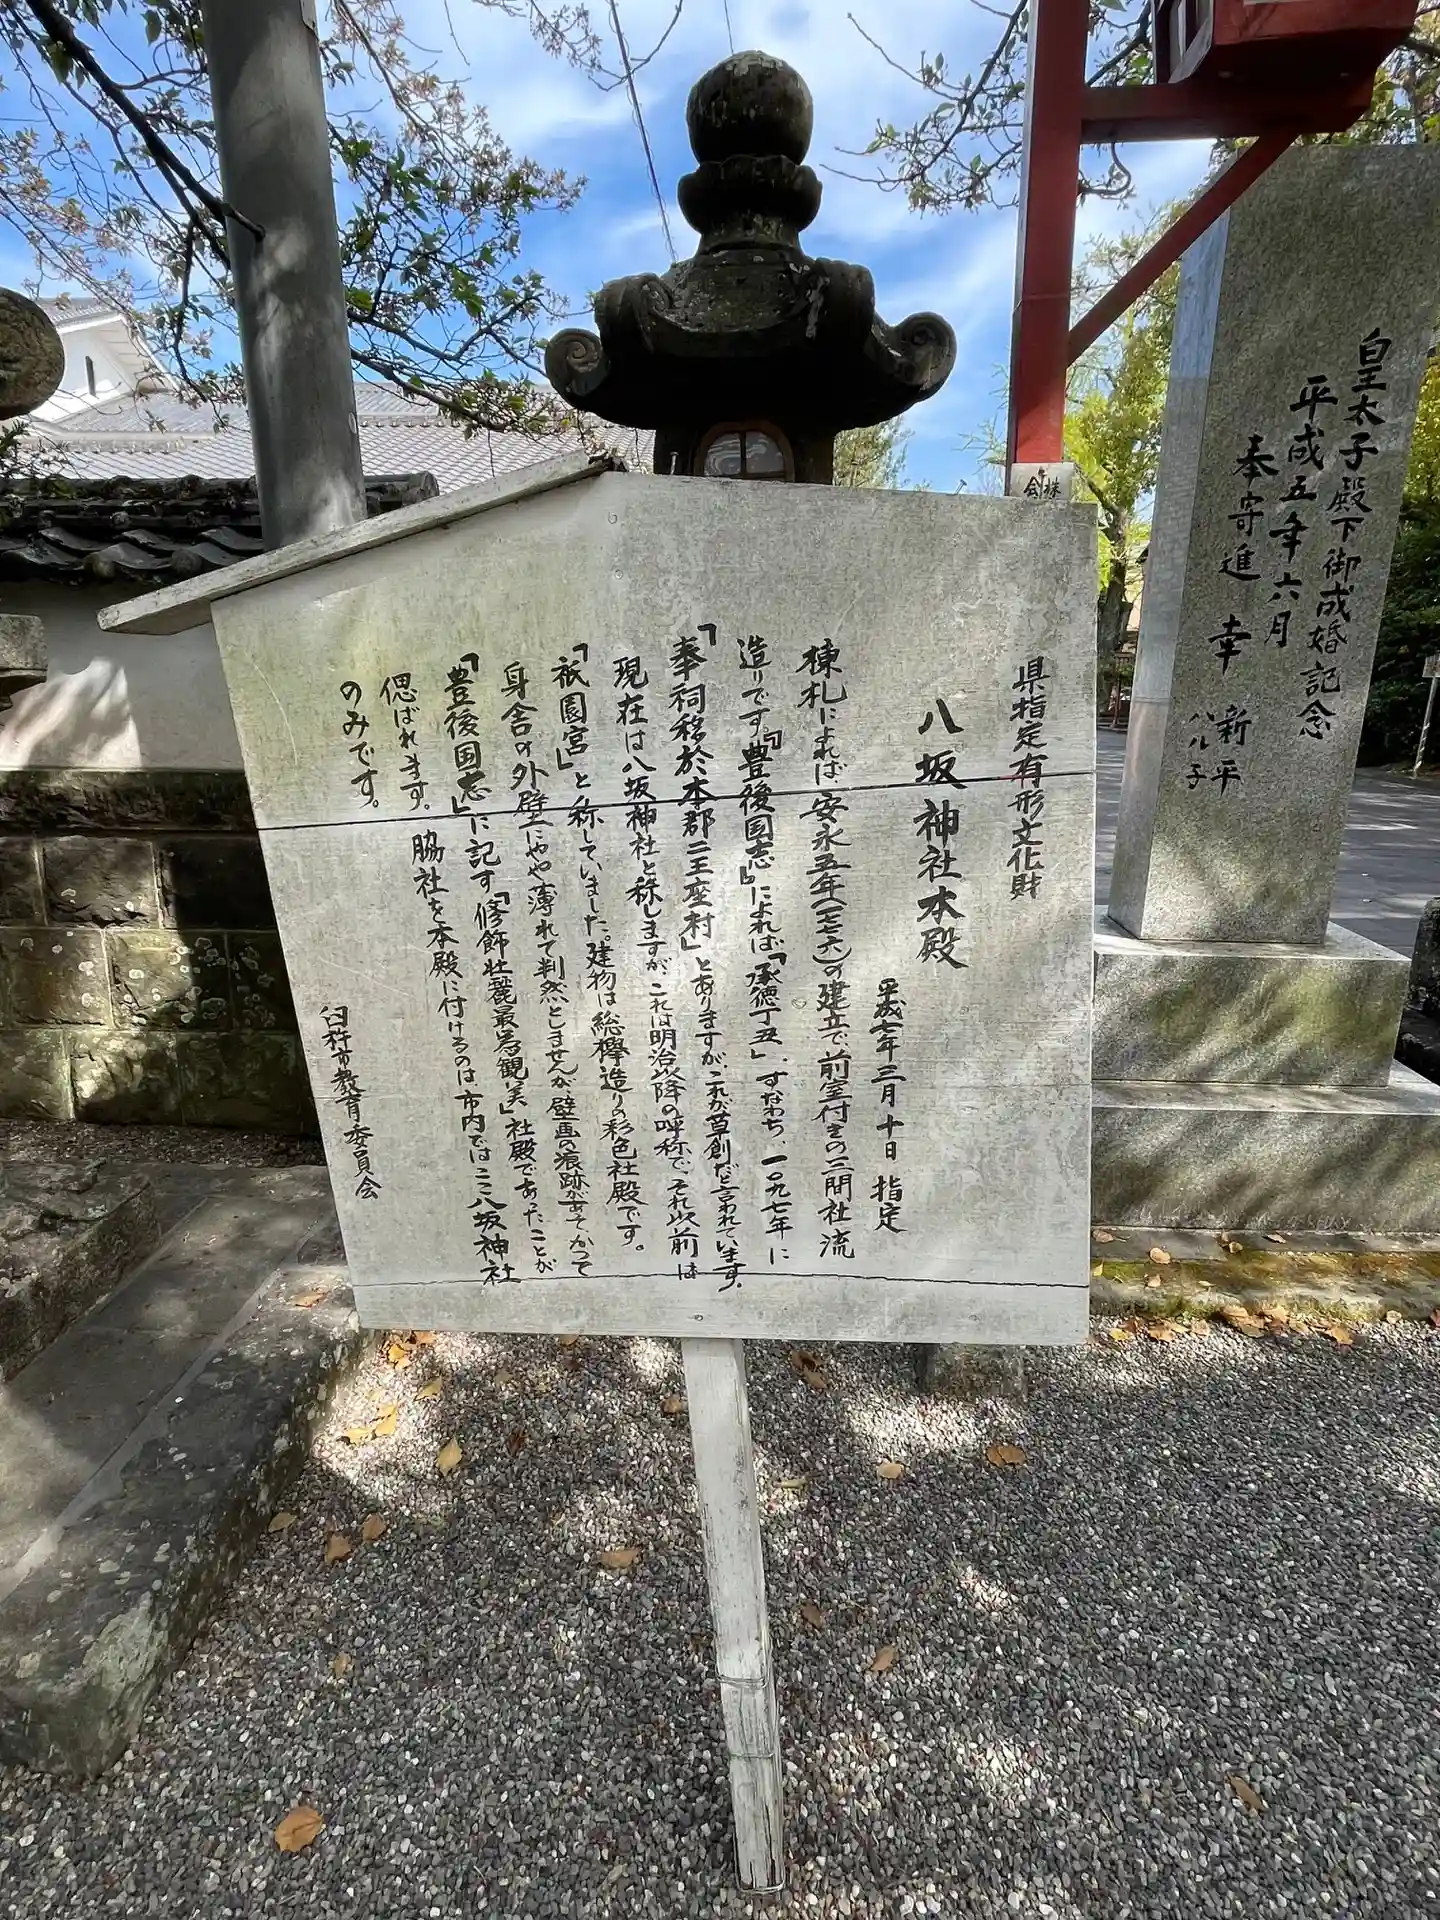 県指定有形文化財
八坂神社本殿
平成七年三月十日 指定
棟札によれば、安永五年(一七七六)の建立で、前室付きの三間社流
造りです。『豊後国志』によれば「承徳丁丑」、すなわち、一〇九七年に
「奉祠移於本郡二王座村」とありますが、これが草創だと言われています。
現在は八坂神社と称しますが、これは明治以降の呼称で、それ以前は
「祇園宮」と称していました。建物は総欅造りの彩色社殿です。
身舎の外壁にやや薄れて判然としませんが壁画の痕跡があり、かつて
『豊後国志』に記す「修飾壮麗最為観美」社殿であったことが
偲ばれます。 脇社を本殿に付けるのは、市内ではここ八坂神社
のみです。
臼杵市教育委員会
皇太子殿下御成婚記念
平成五年六月
奉寄進 幸 新平
ハル子